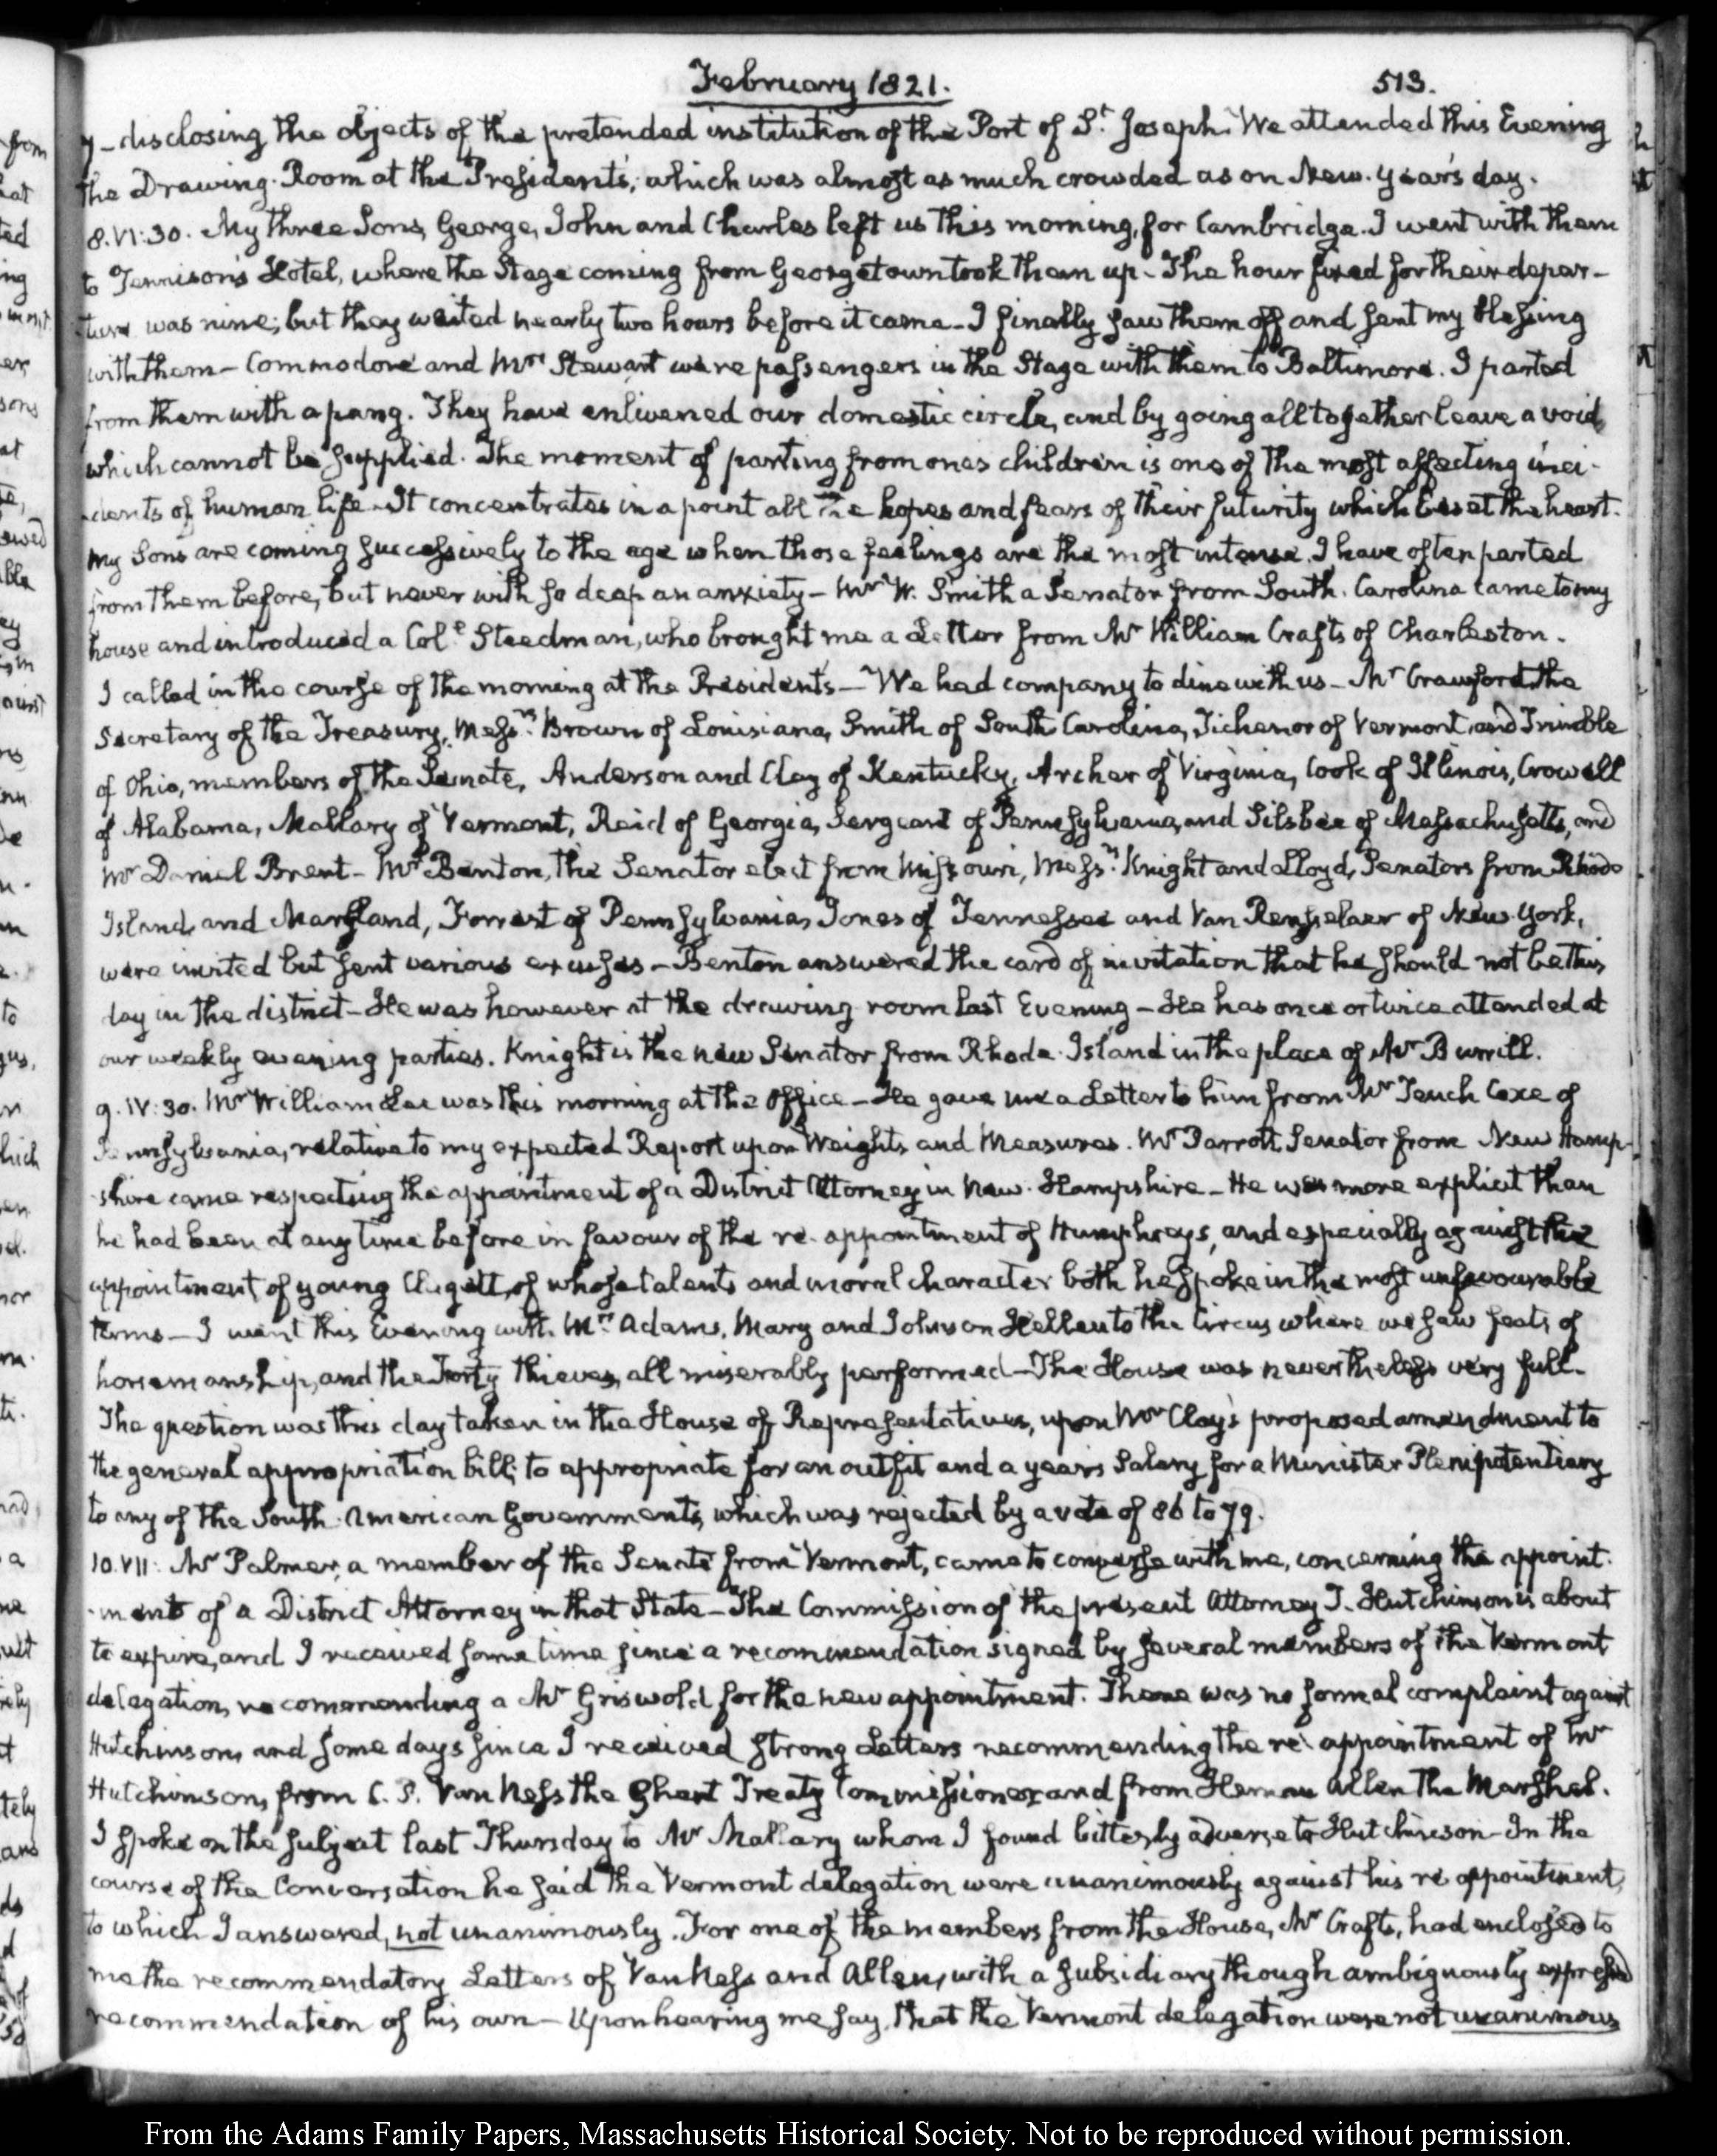 February 1821.
513.
7 - disclosing the objects of the pretended institution of the Port of St. Joseph. We attended this Evening
the Drawing-Room at the President's; which was almost as much crowded as on New-Year's day.
8. VI:30. My three Sons, George, John and Charles left us this morning, for Cambridge. I went with them
to Tennison's Hotel, where the Stage coming from Georgetown took them up - The hour fixed for their depar-
-ture was nine; but they waited nearly two hours before it came - I finally saw them off and sent my blessing
with them - Commodore and Mrs Stewart were passengers in the Stage with them to Baltimore. I parted
from them with a pang. They have enlivened our domestic circle, and by going all together leave a void,
which cannot be supplied. The moment of parting from ones children is one of the most affecting inci-
-dents of human life - It concentrates in a point all the hopes and fears of their futurity which beset the heart.
My Sons are coming successively to the age when those feelings are the most intense. I have often parted
from them before, but never with so deep an anxiety - Mr W. Smith a Senator from South-Carolina came to my
house and introduced a Coll. Steedman, who brought me a Letter from Mr William Crafts of Charleston.
I called in the course of the morning at the President's - We had company to dine with us - Mr Crawford, the
Secretary of the Treasury, Messrs. Brown of Louisiana, Smith of South Carolina, Tichenor of Vermont, and Trimble
of Ohio, members of the Senate, Anderson and Clay of Kentucky, Archer of Virginia, Cook of Illinois, Crowell
of Alabama, Mallary of Vermont, Reid of Georgia, Sergeant of Pennsylvania, and Silsbee of Massachusetts, and
Mr Daniel Brent - Mr Benton, the Senator elect from Missouri, Messrs. Knight and Lloyd, Senators from Rhode
Island, and Maryland, Forrest of Pennsylvania, Jones of Tennessee and Van Rensselaer of New-York,
were invited but sent various excuses - Benton answered the card of invitation that he should not be this
day in the district - He was however at the drawing room last Evening - He has once or twice attended at
our weekly evening parties. Knight is the new Senator from Rhode-Island in the place of Mr Burrill.
9. IV:30. Mr William Lee was this morning at the Office - He gave me a Letter to him from Mr Tench Coxe of
Pennsylvania, relative to my expected Report upon Weights and Measures. Mr Parrott, Senator from New Hamp-
-shire came respecting the appointment of a District Attorney in New-Hampshire - He was more explicit than
he had been at any time before in favour of the re-appointment of Humphreys, and especially against the
appointment of young Clagett, of whose talents and moral character both he spoke in the most unfavourable
terms - I went this Evening with Mrs Adams, Mary and Johnson Hellen to the Circus where we saw feats of
horsemanship, and the Forty thieves, all miserably performed - The House was nevertheless very full.
The question was this day taken in the House of Representatives, upon Mr Clay's proposed amendment to
the general appropriation bill; to appropriate for an outfit and a years Salary for a Minister Plenipotentiary
to any of the South-American Governments, which was rejected by a vote of 86 to 79.
10. VII: Mr Palmer, a member of the Senate from Vermont, came to converse with me, concerning the appoint-
-ment of a District Attorney in that State - The Commission of the present Attorney T. Hutchinson is about
to expire, and I received some time since a recommendation signed by several members of the Vermont
delegation, recommending a Mr Griswold for the new appointment. There was no formal complaint against
Hutchinson, and some days since I received strong Letters recommending the re-appointment of Mr
Hutchinson, from C. P. Van Ness the Ghent Treaty Commissioner and from Heman Allen the Marshal.
I spoke on the subject last Thursday to Mr Mallary whom I found bitterly adverse to Hutchinson - In the
course of the Conversation he said the Vermont delegation were unanimously against his re-appointment,
to which I answered, not unanimously. For one of the members from the House, Mr Crafts, had enclosed to
me the recommendatory Letters of Van Ness and Allen, with a subsidiary though ambiguously expressed
recommendation of his own - Upon hearing me say, that the Vermont delegation were not unanimous
From the Adams Family Papers, Massachusetts Historical Society. Not to be reproduced without permission.